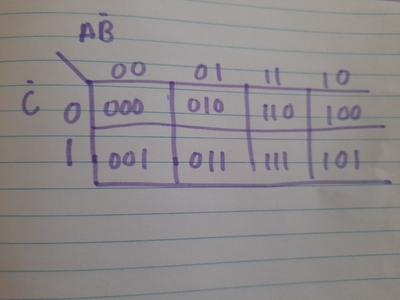 AB̄
00 01 11 10
C̄ 0 000 010 110 100
1 001 011 111 101